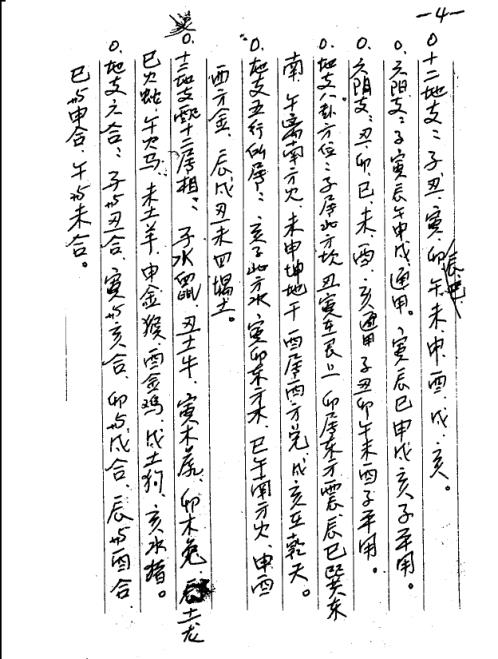 -4-
0十二地支：子、丑、寅、卯、辰、巳、午、未、申、酉、戌、亥。
0.六阳支：子寅辰午申戌通用。寅辰巳申戌亥子平用。
0.六阴支：丑、卯、巳、未、酉、亥通用子丑卯午未酉子平用。
0.地支八卦方位：子居北方坎丑寅在艮上卯居东方震辰巳巽东
南、午离南方火、未申坤地干酉居西方兑、戌亥在乾天。
0.地支五行所属：亥子北方水、寅卯东方木、巳午南方火、申酉
西方金、辰戌丑未四塌土。
0.十二地支配十二属相：子水鼠、丑土牛、寅木虎、卯木兔、辰土龙
巳火蛇、午火马、未土羊、申金猴、酉金鸡、戌土狗、亥水猪。
0.地支六合：子与丑合、寅与亥合、卯与戌合、辰与酉合
巳与申合、午与未合。